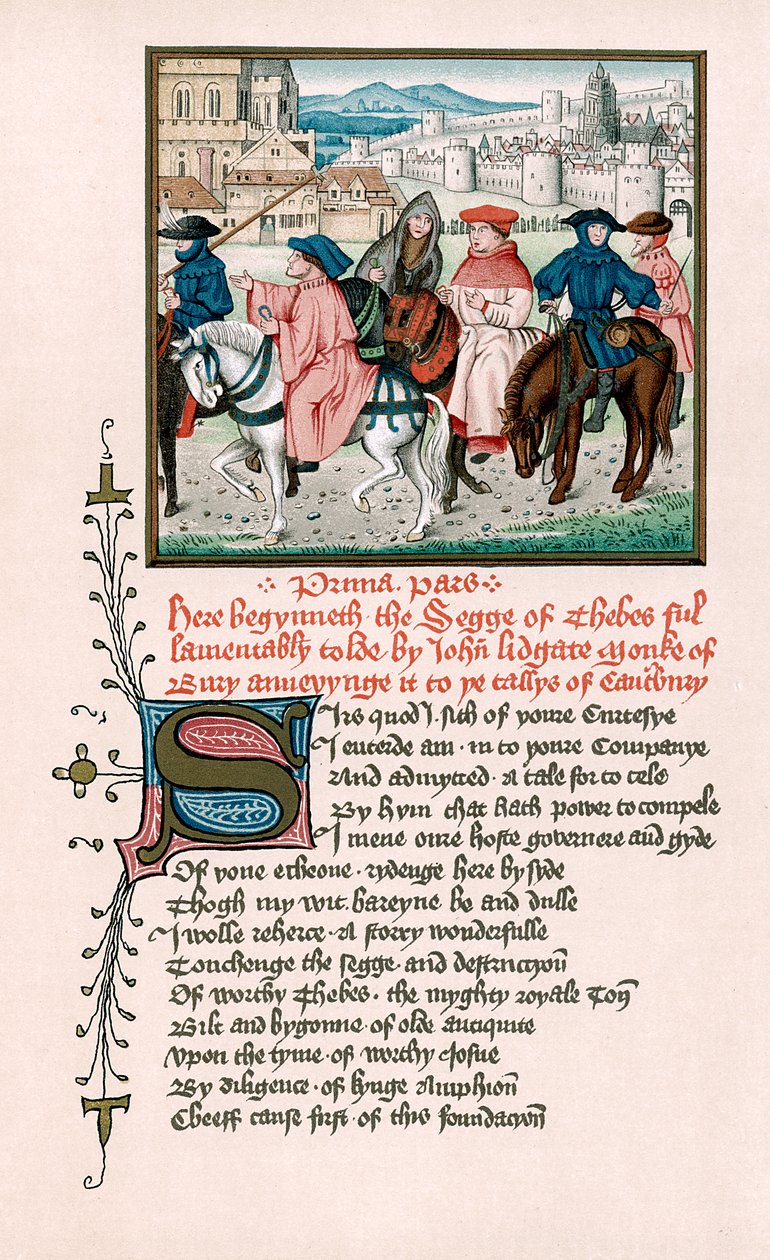 Prima. pars
Here begynneth the Segge of Thebes ful
lamentably tolde by Johñ lidgate Monke of
Bury annexynge it to ye tallys of Cautbury
Sirs quod I. sith of youre Curtesye
I enterde am · in to youre Companye
And admytted · A tale for to tele
By hym that hath power to compele
I mene oure hoste governere and gyde
Of yone echeone · rydenge here by syde
Thogh my wit. bareyne be and dulle
I wolle reherce · A story wonderfulle
Touchenge the segge · and destructyoñ
Of worthy Thebes · the myghty royale Toñ
Bilt and bygonne · of olde antiquite
Vpon the tyme · of worthy Josue
By diligence · of kynge Amphioñ
Cheeff cause first · of this foundacyoñ